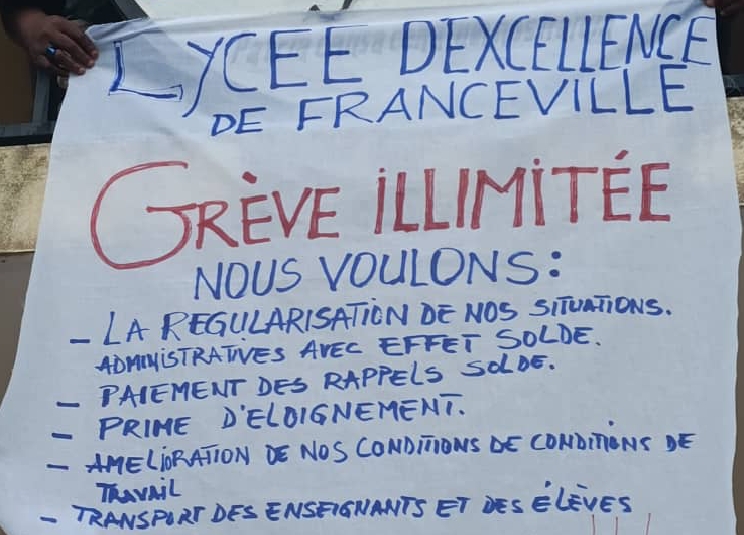 LYCEE D'EXCELLENCE
DE FRANCEVILLE
GRÈVE ILLIMITÉE
NOUS VOULONS:
- LA REGULARISATION DE NOS SITUATIONS.
ADMINISTRATIVES AVEC EFFET SOLDE.
- PAIEMENT DES RAPPELS SOLDE.
- PRIME D'ELOIGNEMENT.
- AMELIORATION DE NOS CONDITIONS DE CONDITIONS DE
TRAVAIL
- TRANSPORT DES ENSEIGNANTS ET DES ÉLÈVES